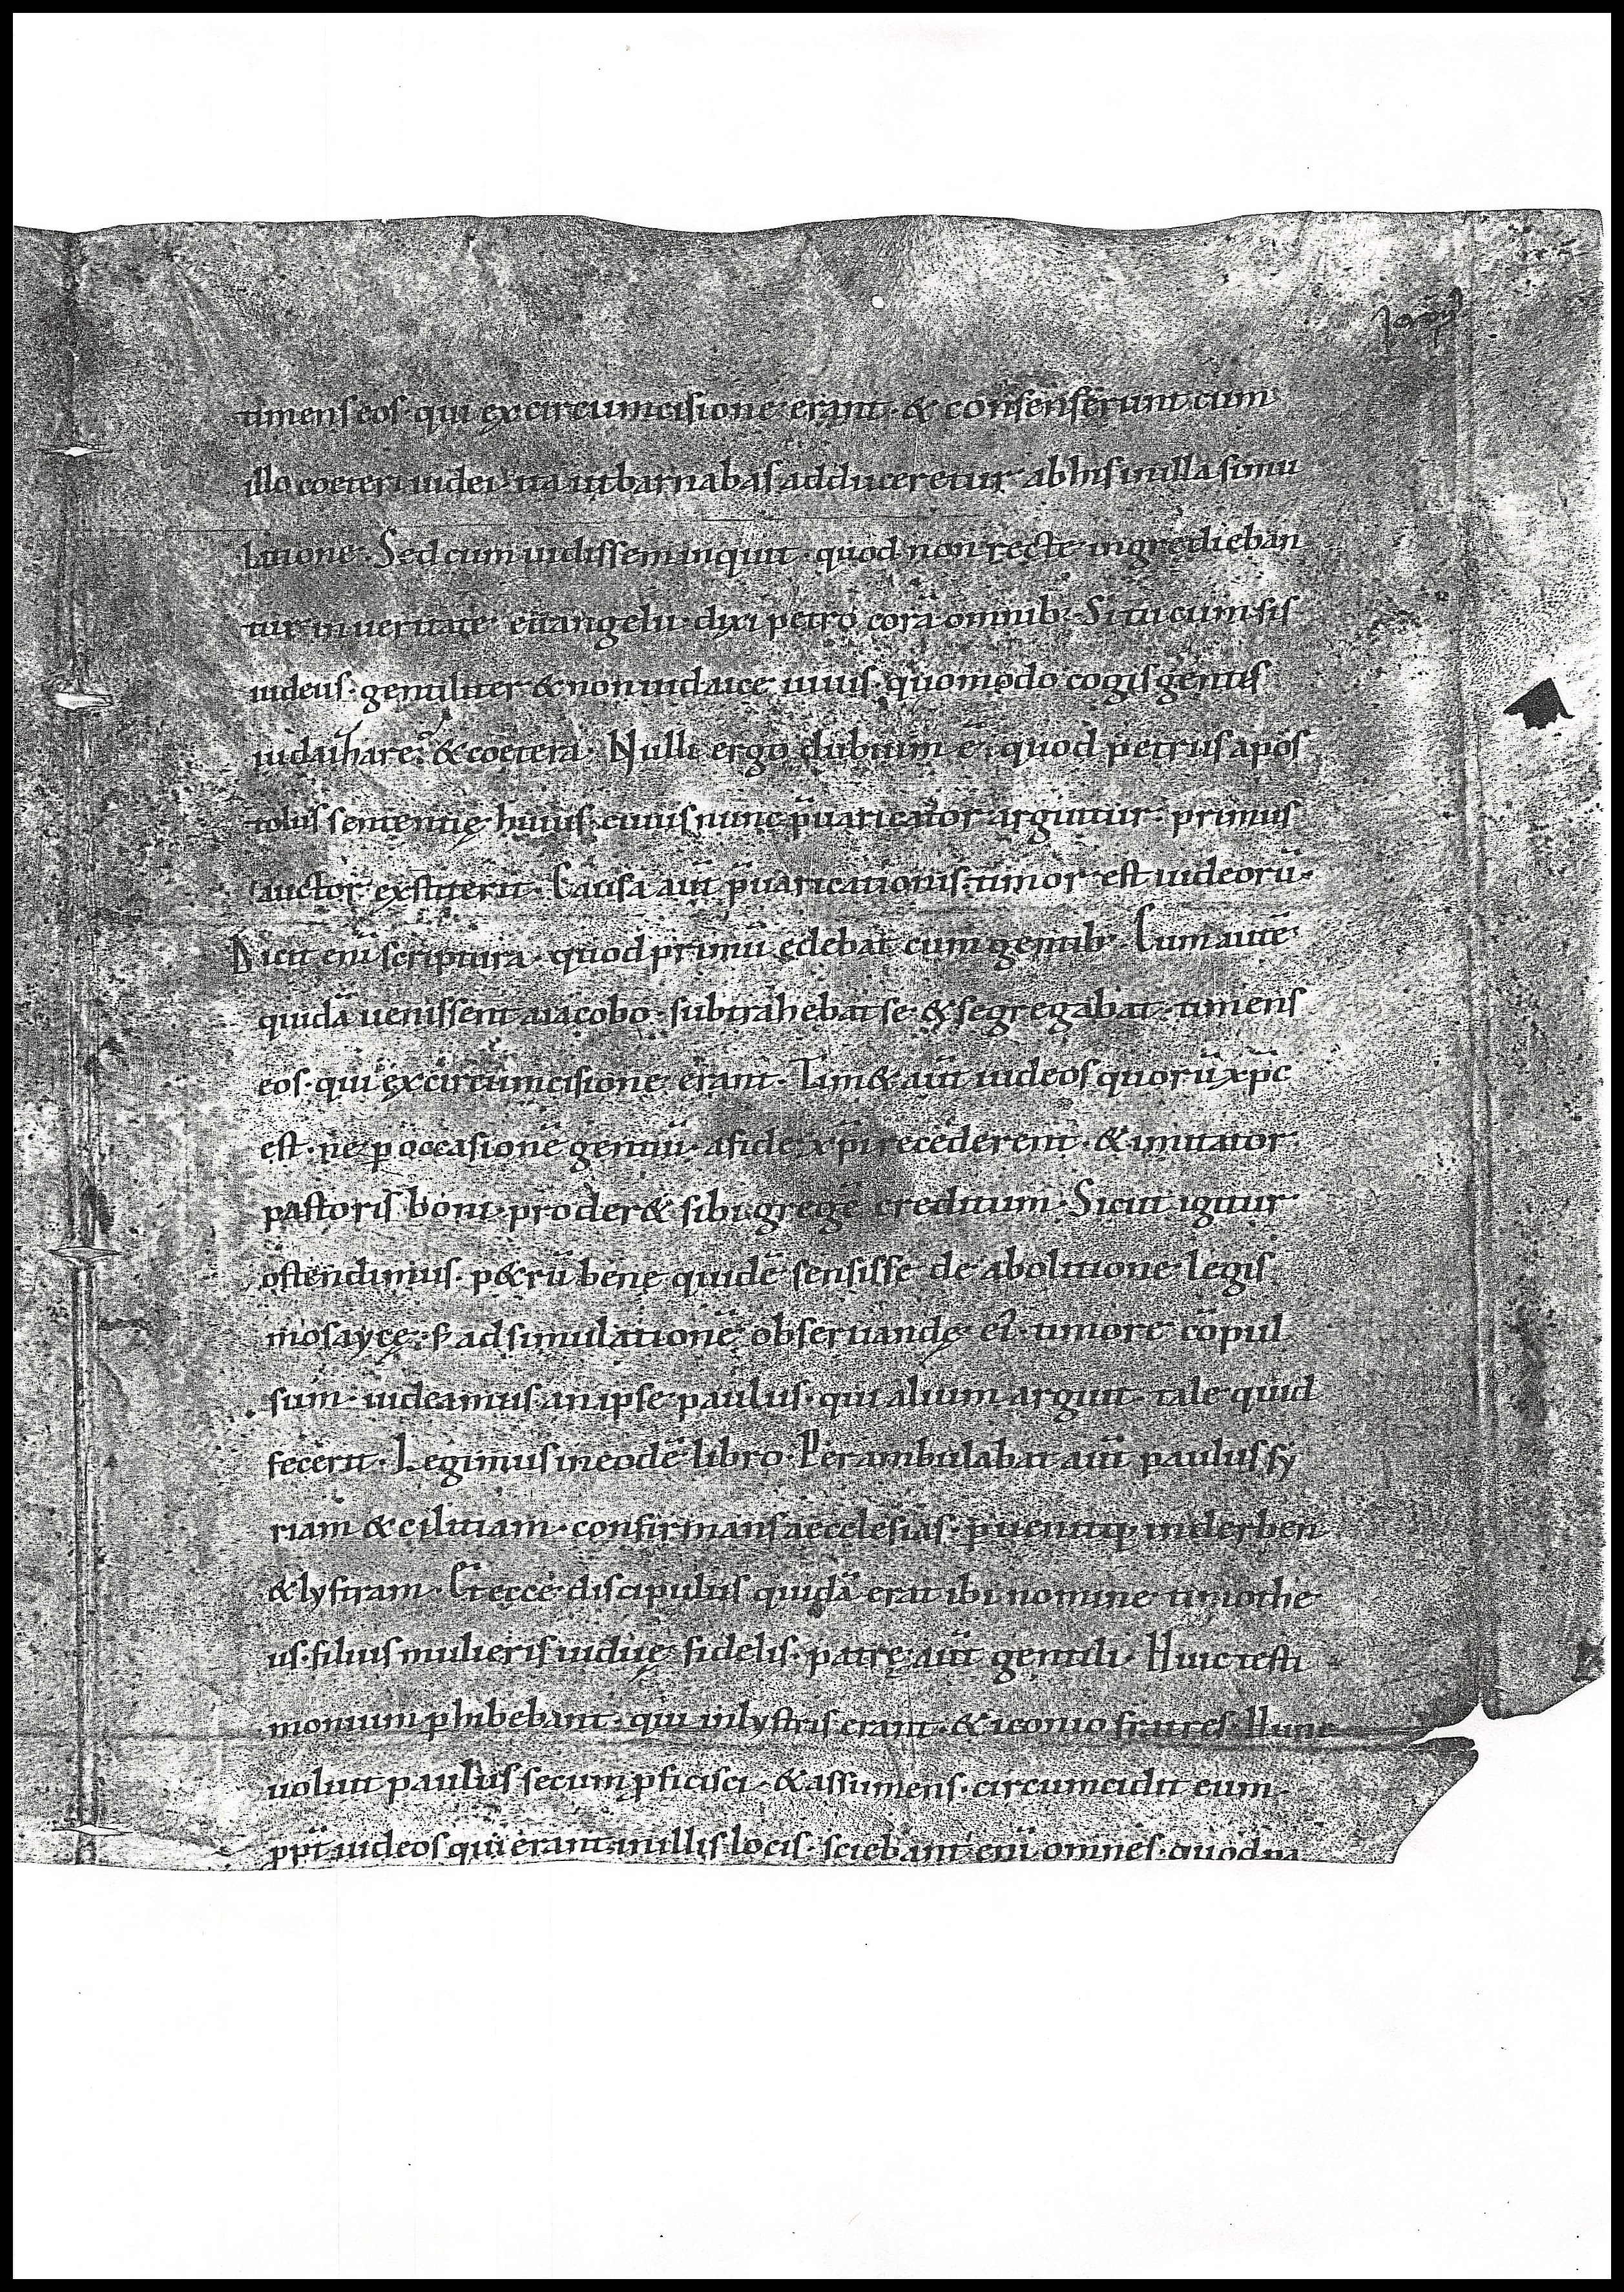 timens eos · qui ex circumcisione erant · & consenserunt cum
illo coeteri iudei · ita ut barnabas adduceretur ab his in illa simu
latione · Sed cum uidissem inquit · quod non recte ingredieban
tur in ueritate euangelii · dixi petro corā omnib; Si tu cum sis
iudeus · gentiliter & non iudaice uiuis · quomodo cogis gentes
iudaizare? & coetera · Nulli ergo dubium ē · quod petrus apos
tolus sententię huius · cuius nunc p̄uaricator arguitur · primus
auctor exstiterit · Causa aūt p̄uaricationis · timor est iudeorū ·
Dicit enī scriptura · quod primū edebat cum gentib; Cum autē
quidā uenissent a iacobo · subtrahebat se & segregabat · timens
eos · qui ex circumcisione erant · Tim& aūt iudeos quorū xp̄c
est · ne p occasionē gentiū · a fide xp̄i recederent · & imitator
pastoris boni · proder& sibi gregē creditum · Sicut igitur
ostendimus · p&rū bene quidē sensisse de abolitione legis
mosaycę · s; ad simulationē obseruandę ei · timore cōpul
sum · uideamus · an ipse paulus · qui alium arguit · tale quid
fecerit · Legimus in eodē libro · Perambulabat aūt paulus sy
riam & ciliciam · confirmans aecclesias · puenitq; in derben
& lystram · Et ecce discipulus quidā erat ibi nomine timothe
us · filius mulieris uiduę fidelis · patre aūt gentili · Huic testi
monium phibebant · qui in lystris erant · & iconio fratres · Hunc
uoluit paulus secum pficisci · & assumens · circumcidit eum
ppt̄ iudeos qui erant in illis locis · sciebant enī omnes · quod pa